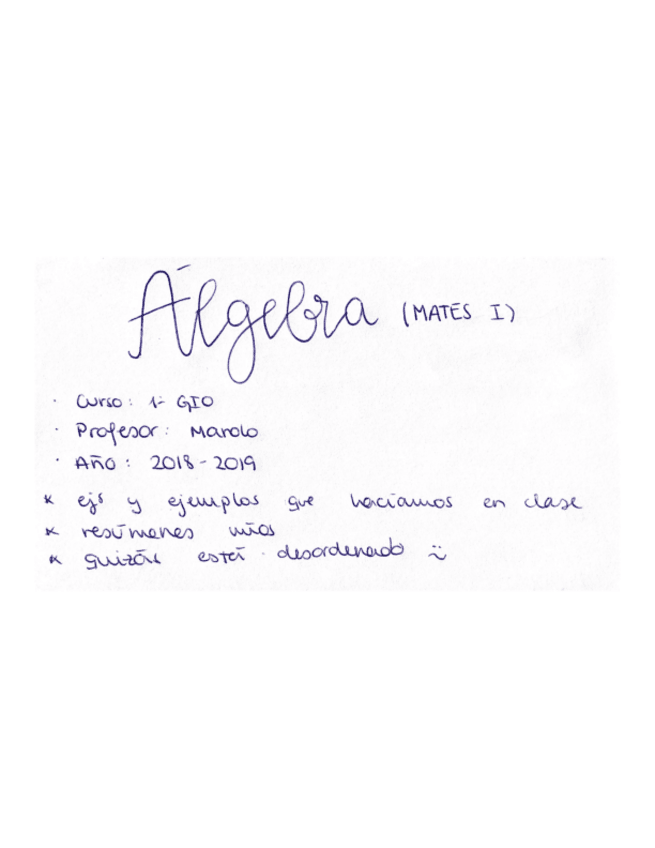 Álgebra (MATES I)
· Curso: 1º GIO
· Profesor: Manolo
· Año: 2018-2019
* ejs y ejemplos que hacíamos en clase
* resúmenes míos
* quizás está desordenado :)